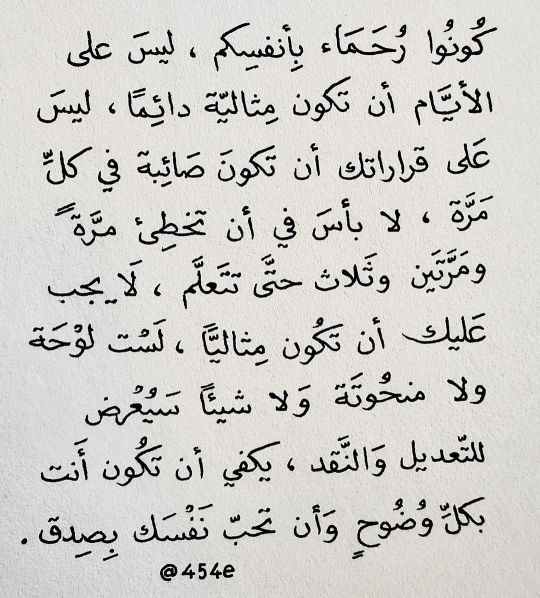 كُونُوا رُحَمَاء بِأنفسِكم ، ليسَ على
الأيَّام أن تَكون مِثاليّة دائِمًا ، ليسَ
عَلى قراراتك أن تَكونَ صَائِبة في كلِّ
مَرَّة ، لا بأسَ في أن تخطِئ مرَّةً
ومَرَّتَين وثَلاث حتَّى تتَعلَّم ، لَا يجب
عَليك أن تَكُون مِثاليًّا ، لَسْت لوْحَة
ولا منحُوتَة وَلا شيئًا سَيُعْرض
للتّعديل وَالنَّقد ، يكفي أن تَكُون أَنت
بكلِّ وُضُوحٍ وَأن تحبّ نَفْسَك بِصِدق .
@454e